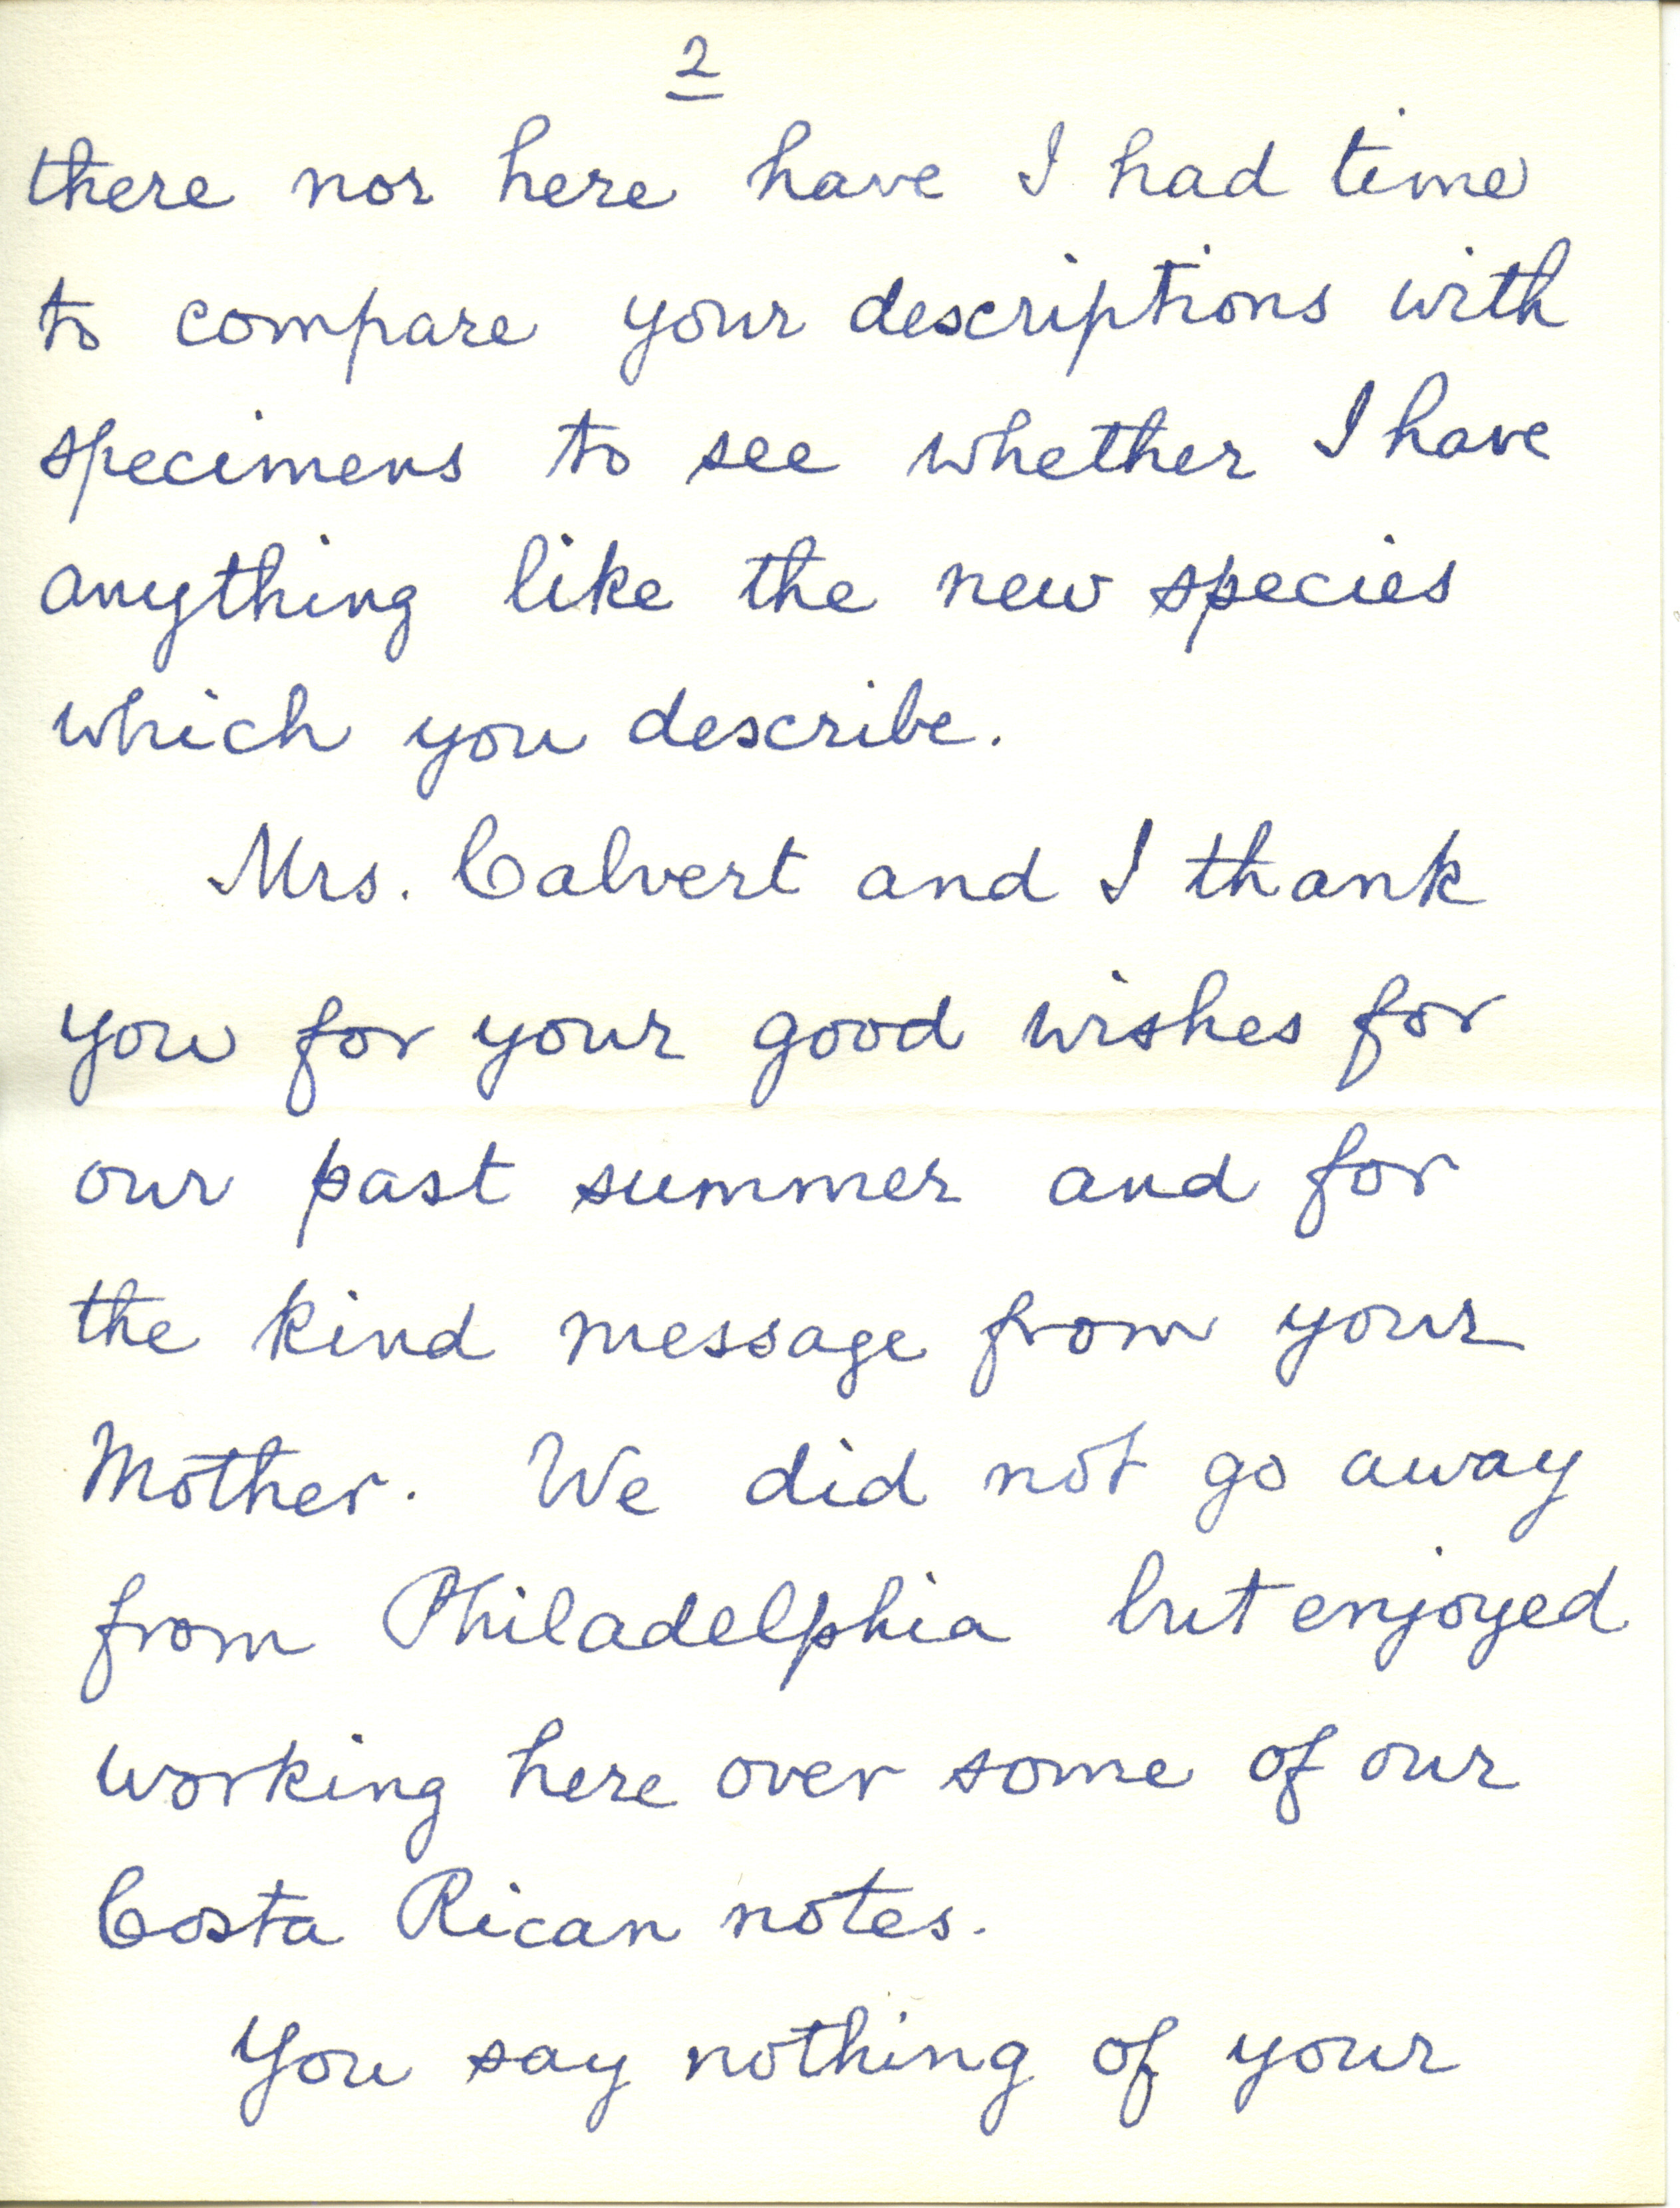 2
there nor here have I had time
to compare your descriptions with
specimens to see whether I have
anything like the new species
which you describe.
Mrs. Calvert and I thank
you for your good wishes for
our past summer and for
the kind message from your
Mother. We did not go away
from Philadelphia but enjoyed
working here over some of our
Costa Rican notes.
You say nothing of your